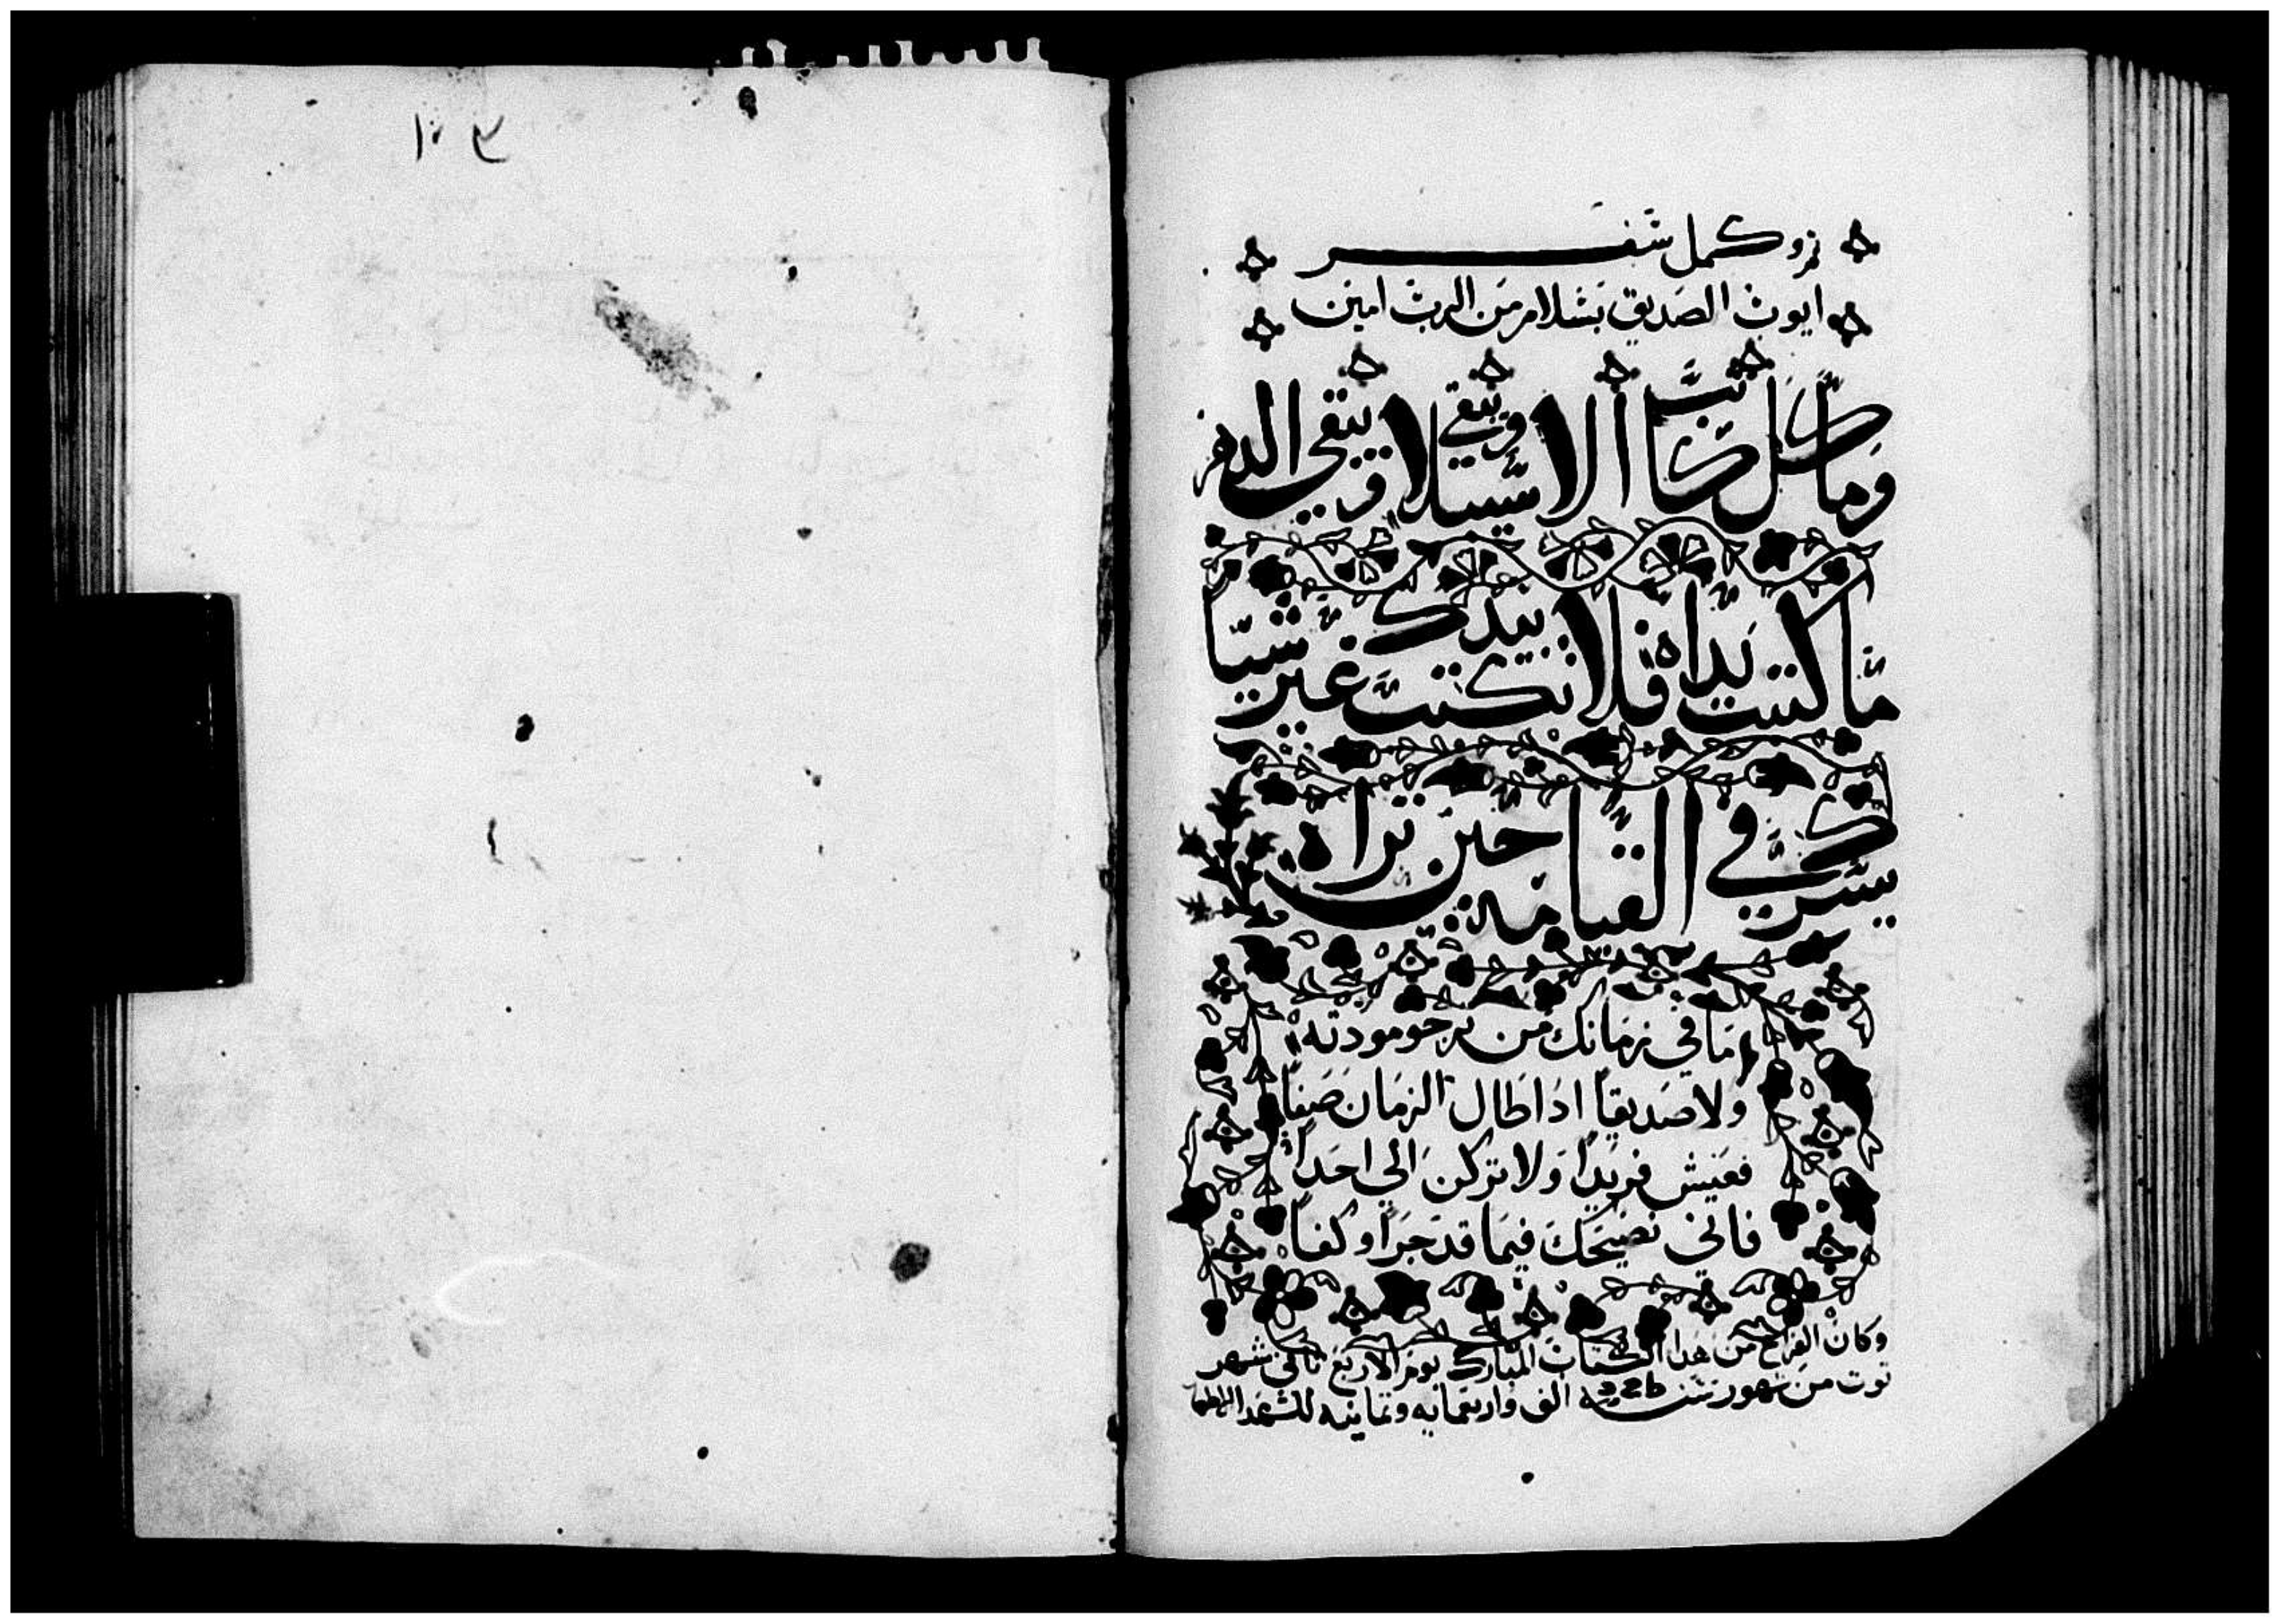 ١٠٣
تم وكمل سفر
ايوب الصديق بسلام من الرب امين
وما كل كاتب الا سيبلا ويبقي ويبقي الدهر
ما كتبت يداه فلا تكتب بيدك غير شيا
يسرك في القيامة حين تراه
ما في زمانك من يرجو مودته
ولا صديقاً اذا طال الزمان صفا
فعيش فريداً ولا تركن الي احداً
فاني نصيحك فيما قد جرا وكفا
وكان الفراغ من هذا الكتاب المبارك يوم الاربع تاني شهر
توت من شهور سنه الف واربعمايه وتمانيه للشهدا الاطهار